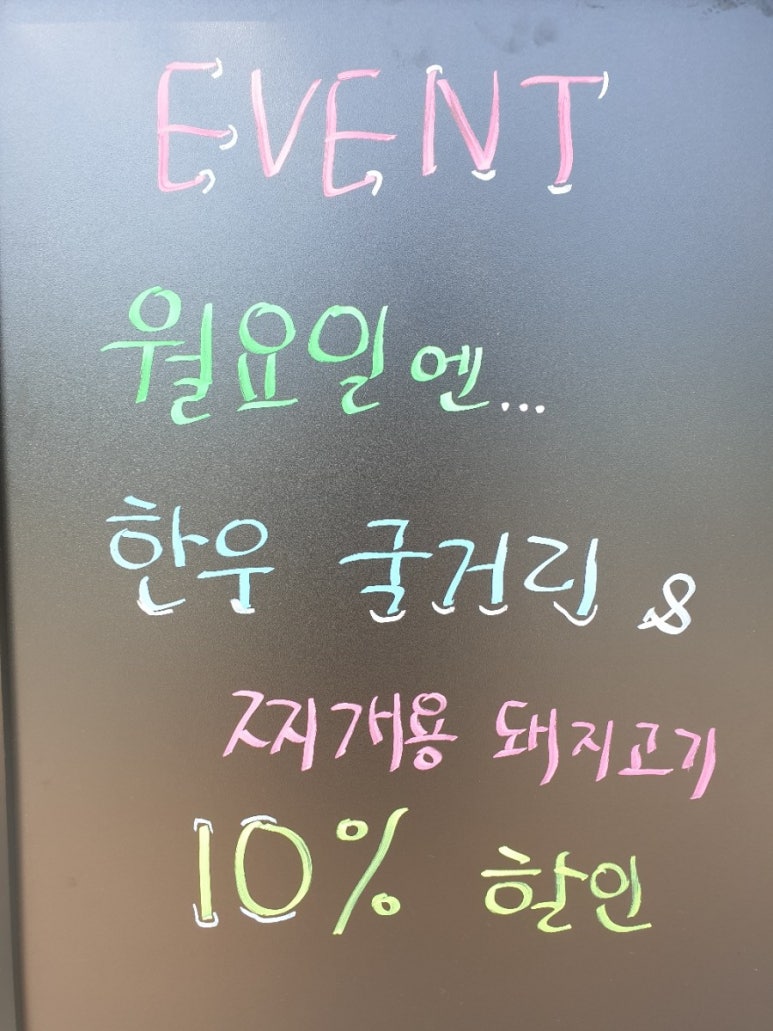 EVENT
월요일엔...
한우 굴거리 &
찌개용 돼지고기
10% 할인